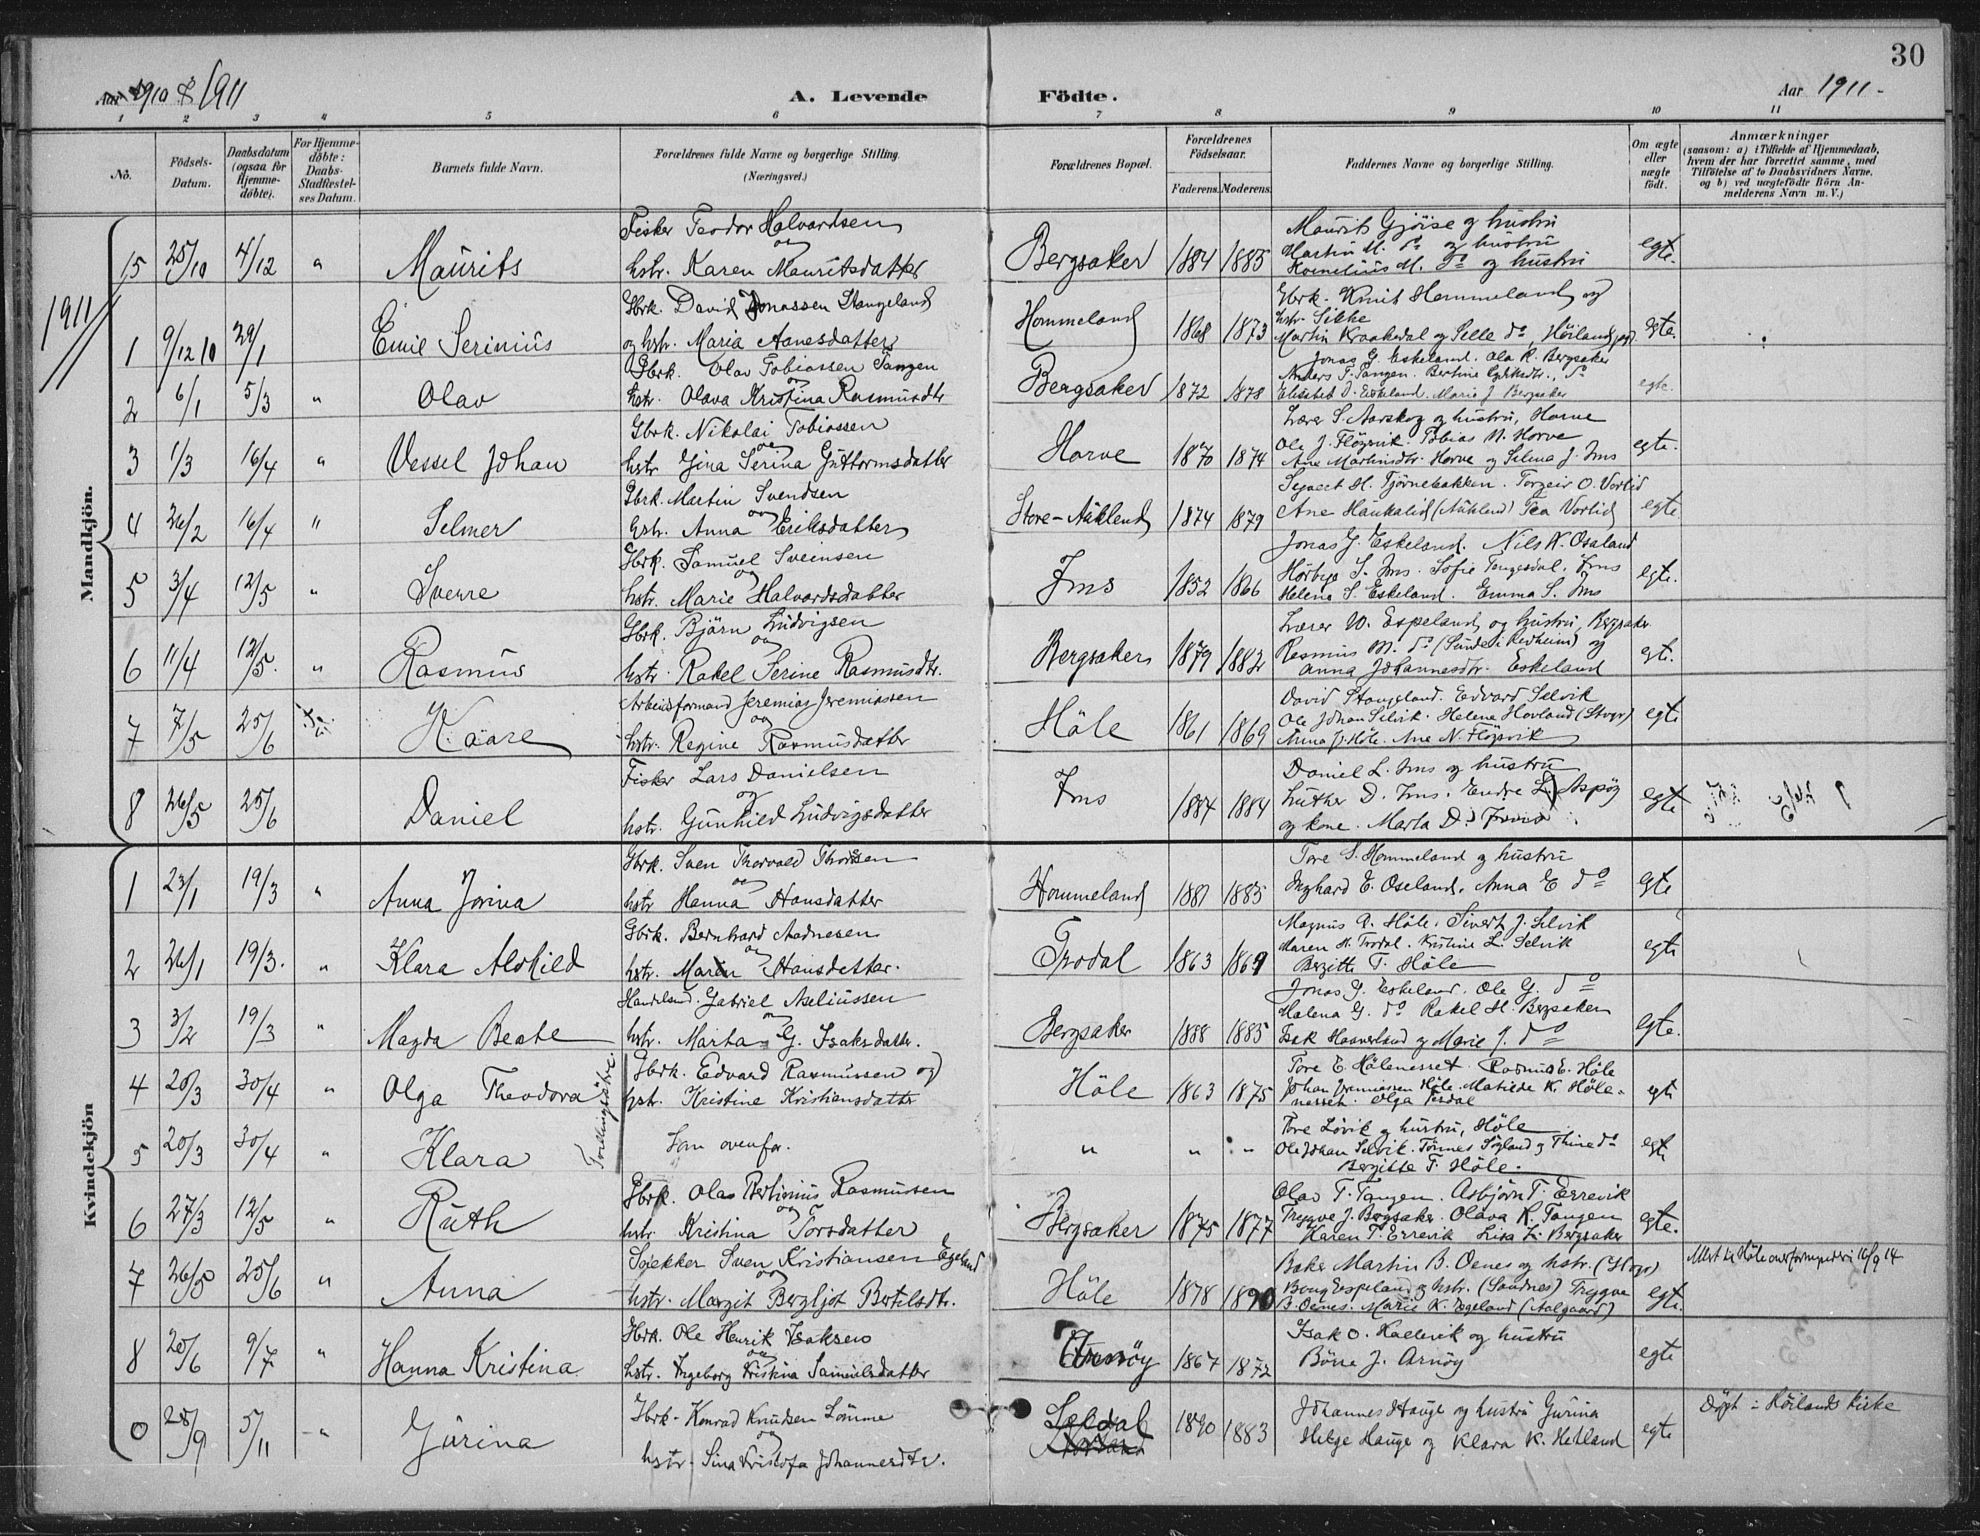 30
Aar 1910 & 1911
A. Levende Födte.
Aar 1911.
1 2 3 4 5 6 7 8 9 10 11
No.
Födsels-Datum.
Daabsdatum (ogsaa for Hjemmedöbte).
For Hjemmedöbte: Daabs-Stadfæstelses Datum.
Barnets fulde Navn.
Forældrenes fulde Navne og borgerlige Stilling. (Næringsvei.)
Forældrenes Bopæl.
Forældrenes Födselsaar.
Faderens. Moderens.
Faddernes Navne og borgerlige Stilling.
Om ægte eller uægte födt.
Anmærkninger
(saasom: a) i Tilfælde af Hjemmedaab, hvem der har forrettet samme, med Tilföielse af to Daabsvidners Navne, og b) ved uægtefödte Börn Anmelderens Navn m. V.)
Mandkjön.
Fisker Teodor Halvardsen og
Maurits Gjöise og hustru
Martin M. do og hustru
15 25/10 4/12 " Maurits hstr. Karen Mauritsdatter Bergsaker 1884 1885 Kornelius M. do og hustru egte.
1911
Gbrk. David Jonassen Stangeland
Gbrk. Knut Hommeland og
hstr. Silke
1 9/12 10 29/1 Emil Serinius og hstr. Maria Aanesdatter Hommeland 1868 1873 Martin Kraakedal og Sille do, egte.
Gbrk. Olav Tobiassen Tangen og
Jonas G. Eskeland. Ola R. Bergsaker
Anders T. Tangen. Bertine
2 6/1 5/3 " Olav hstr. Olava Kristina Rasmusdtr Bergsaker 1872 1878 Elisabed J. Eskeland. Marie J. Bergsaker egte.
Gbrk. Nikolai Tobiassen og
Lærer S. Aarskog og hustru, Horve
Ole J. Flögsvik. Tobias N. Horve
3 1/3 16/4 " Vessel Johan hstr Gina Serina Guttormsdatter Horve 1870 1874 Ane Martinsdtr. Horve og Selma J. Ims egte.
Gbrk. Martin Svendsen og
Syvert H. Tjörnebakken. Torgeir O. Vorlid
4 26/2 16/4 " Selmer hstr. Anna Eriksdatter Store-Aukland 1874 1879 Ane Haukalid (Aukland) Tea Vorlid egte
Gbrk. Samuel Sveinsen og
Jonas G. Eskeland. Nils N. Osaland
S. Ims. Sofie Tangesdal, Ims
5 3/4 12/5 " Sverre hstr. Marie Halvardsdatter Ims 1852 1866 Helena S. Eskeland. Emma S. Ims egte.
Gbrk. Björn Ludvigsen og
Lærer W. Espeland og hustru, Bergsaker
Rasmus M. do og
6 11/4 12/5. " Rasmus hstr. Rakel Serine Rasmusdtr. Bergsaker 1879 1882 Anna Johannesdtr. Eskeland egte.
Arbeidsformand Jeremias Jeremiassen og
David Stangeland. Edvard Selvik
Ole Johan Selvik. Helene Hovland (Stvgr)
7 7/5 25/6 Kaare hstr. Regine Rasmusdatter Höle 1861 1869 Anna J. Höle. Ane N. Flögsvik egte
Fisker Lars Danielsen og
Daniel L. Ims og hustru
Luther D. Ims. Endre L. Aspöy
8 26/5 25/6 Daniel hstr. Gunhild Ludvigsdatter Ims 1887 1884 og kone. Marta D. egte
Kvindekjön
Gbrk. Sven Thorvald Thorsen og
Tore S. Hommeland og hustru
1 23/1 19/3 " Anna Jorina hstr Hanna Hansdatter Hommeland 1881 1885 Inghard E. Oseland. Anna E do egte
Gbrk. Bernhard Aadnesen og
Magnus A. Höle. Sivert J. Selvik
Maren H. Trodal. Kristine L. Selvik
2 26/1 19/3. " Klara Alvhild hstr. Maren Hansdatter. Trodal 1863 1869 Bergitte T. Höle egte
Handelsmd. Gabriel Aseliussen og
Jonas G. Eskeland. Ole G. do
Malena G. do Rakel H. Bergsaker
3 3/2 19/3 " Magda Beate hstr. Marta G. Isaksdatter. Bergsaker 1888 1885 Isak Haaverland og Marie J. do egte.
Tvillingsötre.
Gbrk. Edvard Rasmussen og
Tore E. Hölenesset. Rasmus E. Höle
4 20/3 30/4 " Olga Theodora hstr. Kristine Kristiansdatter Höle 1863 1875 Johan Jeremiassen Höle. Matilde K. Hölenesset. Olga Tesdal egte
Tore Lövik og hustru, Höle
5 20/3 30/4 " Klara Som ovenfor. " " " Ole Johan Selvik. Tönnes Sögland og Thine do egte
Bergitte T. Höle.
Gbrk. Olas Bertinius Rasmussen og
Olav T. Tangen. Asbjörn T. Errevik
Trygve J. Bergsaker. Olava R. Tangen
6 27/3 12/5 " Ruth hstr. Kristina Torsdatter Bergsaker 1875 1877 Karen T. Errevik Lisa L. Bergsaker egte.
Snekker Sven Kristiansen Egeland og
Baker Martin B. Oenes og hstr. (Stvgr)
Attest til Höle overformynderi 16/9 14
7 26/5 25/6 " Anna hstr. Margit Bergljot Bertelsdtr. Höle 1878 1890 Espeland og hstr. (Sandnes) Trygve
B. Oenes. Marie K. Egeland (Aalgaard) egte.
Gbrk. Ole Henrik Isaksen og
Isak O. Kallevik og hustru
8 20/6 9/7 " Hanna Kristina hstr. Ingeborg Kristina Samuelsdatter Arnöy 1867 1872 Börre J. Arnöy egte
Gbrk. Konrad Knudsen Lömme og
Johannes Hauge og hustru Gurina
Döpt i Höilands kirke
0 28/9 5/11 " Gurina hstr. Sina Kristofa Johannesdtr. Seldal 1890 1883 Helge Hauge og Klara K. Hetland egte